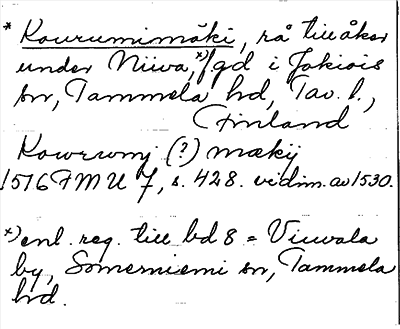 * Kourumimäki, rå till åker
under Niiva, *) gd i Jokiois
sn, Tammela hd, Tav. l.,
Finland
Kowrwmj (?) mækij
1516 FMU 7, s. 428. vidim. av 1530.
*) enl. reg. till bd 8 = Viuvala
by, Somerniemi sn, Tammela
hd.